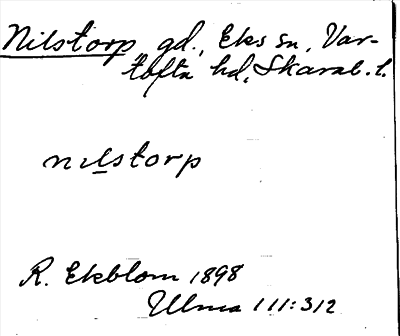 Nilstorp gd., Eks sn, Var-
tofta hd, Skarab. l.
nilstorp
R. Ekblom 1898
Ulma 111:312